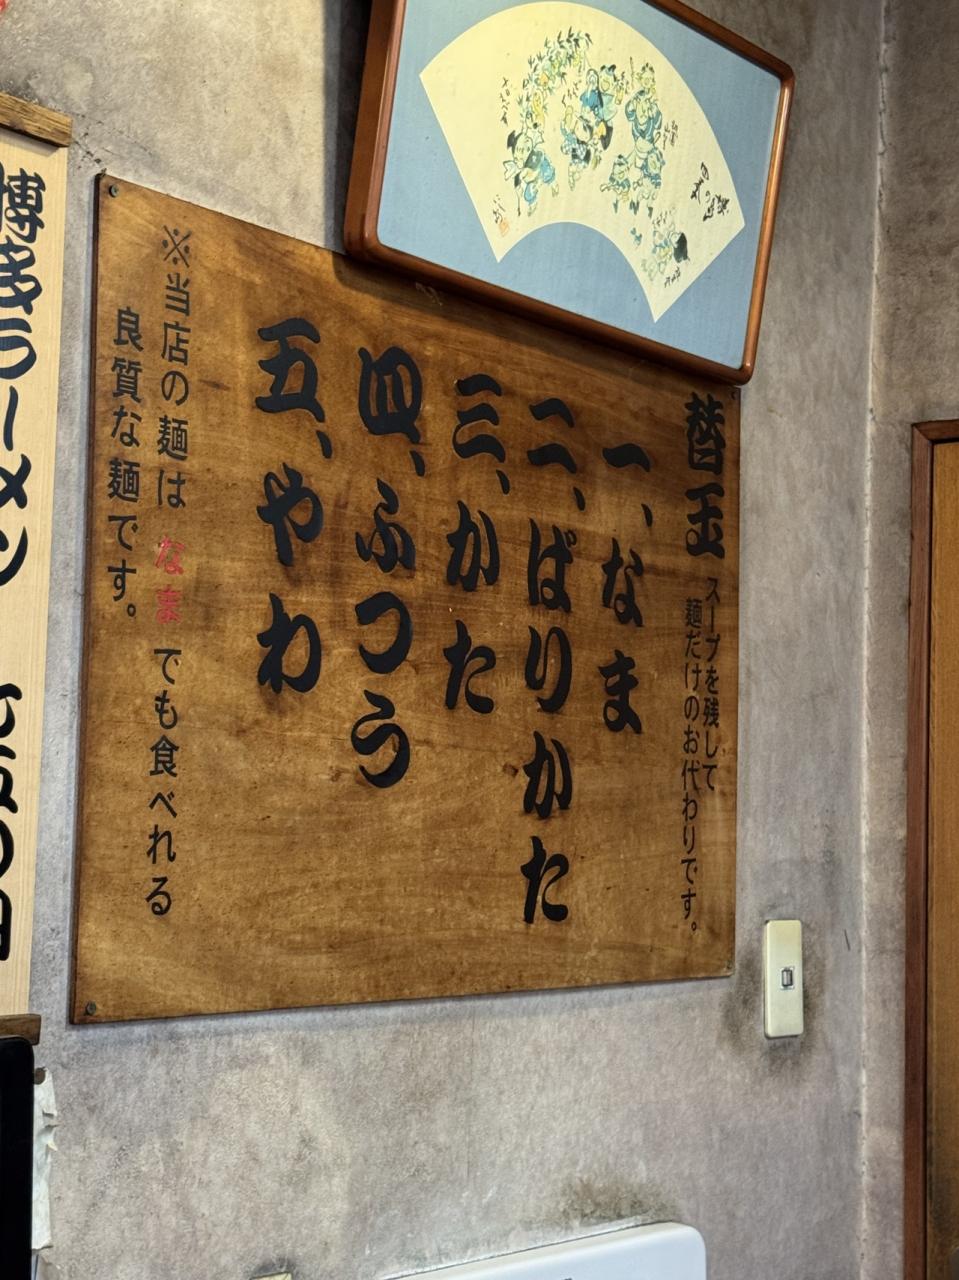 替玉
スープを残して
麺だけのお代わりです。
一、なま
二、ばりかた
三、かた
四、ふつう
五、やわ
※当店の麺は なま でも食べれる
良質な麺です。
博多ラーメン